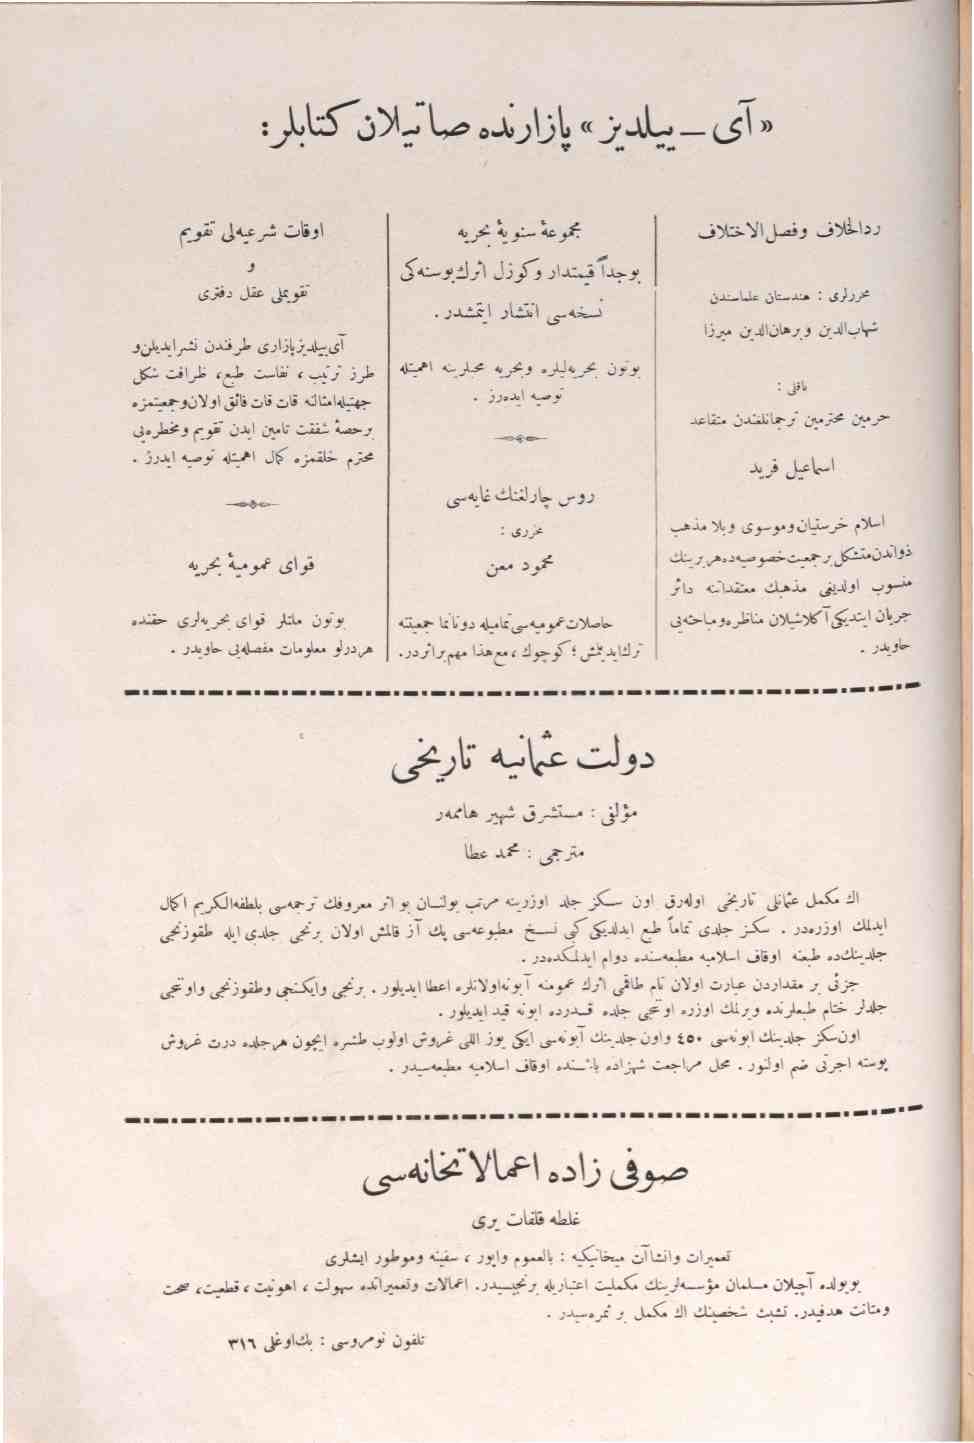 «آی ــ ییلدیز» پازارنده صاتیلان کتابلر :
ردالخلاف وفصل الاختلاف
محررلری : هندستان علماسندن
شهاب‌الدین وبرهان‌الدین میرزا
ناقلی :
حرمین محترمین ترجمانلغندن متقاعد
اسماعیل فرید
اسلام خرستیان وموسوی وبلا مذهب
ذواتدن متشکل بر جمعیت خصوصیه‌ده هر برینك
منسوب اولدیغی مذهبك معتقداتنه دائر
جریان ایتدیکی آکلاشیلان مناظره ومباحثه‌یی
حاویدر .
مجموعۀ سنویۀ بحریه
بوجداً قیمتدار وکوزل اثرك بوسنه‌کی
نسخه‌سی انتشار ایتمشدر .
بوتون بحریه‌لیلره وبحریه محبلرینه اهمیتله
توصیه ایده‌رز .
روس چارلغنك غایه‌سی
محرری :
محمود معن
حاصلات عمومیه‌سی تمامیله دونانما جمعیتنه
ترك ایدیلمش ؛ کوچوك ، مع‌هذا مهم براثردر.
اوقات شرعیه‌لی تقویم
و
تقویملی عقل دفتری
آی‌ییلدیز پازاری طرفندن نشر ایدیلن و
طرز ترتیب ، نفاست طبع، ظرافت شکل
جهتیله امثالنه قات قات فائق اولان وجمعیتمزه
برحصۀ شفقت تأمین ایدن تقویم ومخطره‌یی
محترم خلقمزه کمال اهمیتله توصیه ایدرز .
قوای عمومیۀ بحریه
بوتون ملتلر قوای بحریه‌لری حقنده
هردرلو معلومات مفصله‌یی حاویدر .
دولت عثمانیه تاریخی
مؤلفی : مستشرق شهیر هاممه‌ر
مترجمی : محمد عطا
اك مکمل عثمانلی تاریخی اوله‌رق اون سکز جلد اوزرینه مرتب بولنان بو اثر معروفك ترجمه‌سی بلطفه‌الکریم اکمال
ایدلمك اوزره‌در . سکز جلدی تماماً طبع ایدلدیکی کبی نسخ مطبوعه‌سی پك آز قالمش اولان برنجی جلدی ایله طقوزنجی
جلدینك‌ده طبعنه اوقاف اسلامیه مطبعه‌سنده دوام ایدلمکده‌در .
جزئی بر مقداردن عبارت اولان تام طاقمی اثرك عمومنه آبونه‌اولانلره اعطا ایدیلور . برنجی وایکنجی وطقوزنجی واوننجی
جلدلر ختام طبعلرنده ویرلمك اوزره اوننجی جلده قدرده ابونه قید ایدیلور .
اون‌سکز جلدینك ابونه‌سی ٤٥٠ واون جلدینك آبونه‌سی ایکی یوز اللی غروش اولوب طشره ایچون هر جلده درت غروش
پوسته اجرتی ضم اولنور . محل مراجعت شهزاده باشنده اوقاف اسلامیه مطبعه‌سیدر .
صوفی زاده اعمالاتخانه‌سی
غلطه قلفات یری
تعمیرات وانشاآت میخانیکیه : بالعموم واپور ، سفینه وموطور ایشلری
بویولده آچیلان مسلمان مؤسسه‌لرینك مکملیت اعتباریله برنجیسیدر. اعمالات وتعمیراتده سهولت ، اهونیت ، قطعیت، صحت
ومتانت هدفیدر. تشبث شخصینك اك مکمل بر ثمره‌سیدر .
تلفون نومروسی : بك‌اوغلی ٣١٦